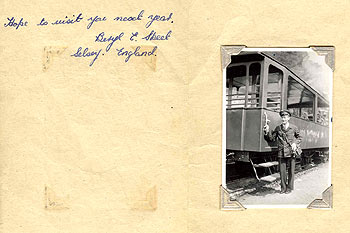 Hope to visit you next year.
Beryl E. Street
Selsey. England.